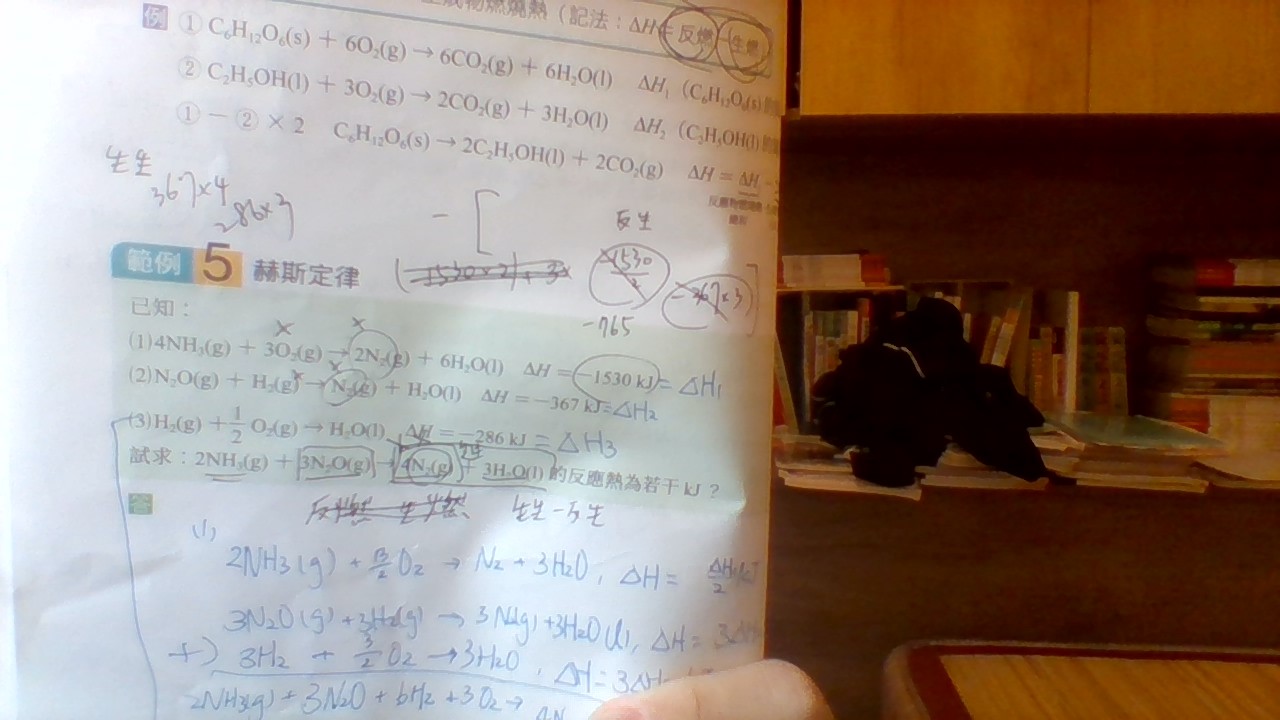 生成物燃燒熱（記法：ΔH = 反燃 − 生燃
例 ① C₆H₁₂O₆(s) + 6O₂(g) → 6CO₂(g) + 6H₂O(l) ΔH₁（C₆H₁₂O₆(s)
② C₂H₅OH(l) + 3O₂(g) → 2CO₂(g) + 3H₂O(l) ΔH₂（C₂H₅OH(l)
① − ② × 2 C₆H₁₂O₆(s) → 2C₂H₅OH(l) + 2CO₂(g) ΔH = ΔH₁ −
生生
367×4
286×3
− [ 反生
範例 5 赫斯定律 (−1530×2)+3× −1530/2 −367×3 ]
−765
已知：
(1)4NH₃(g) + 3O₂(g) → 2N₂(g) + 6H₂O(l) ΔH = −1530 kJ = ΔH₁
(2)N₂O(g) + H₂(g) → N₂(g) + H₂O(l) ΔH = −367 kJ = ΔH₂
(3)H₂(g) + ½ O₂(g) → H₂O(l) ΔH = −286 kJ = ΔH₃
試求：2NH₃(g) + 3N₂O(g) → 4N₂(g) + 3H₂O(l) 的反應熱為若干 kJ？
答 反燃 − 生燃 生生 − 反生
(1)
2NH₃(g) + 3/2 O₂ → N₂ + 3H₂O, ΔH = ΔH₁/2
3N₂O(g) + 3H₂(g) → 3N₂(g) + 3H₂O(l), ΔH = 3ΔH
+) 3H₂ + 3/2 O₂ → 3H₂O, ΔH = 3ΔH
2NH₃(g) + 3N₂O + 6H₂ + 3O₂ → 4N